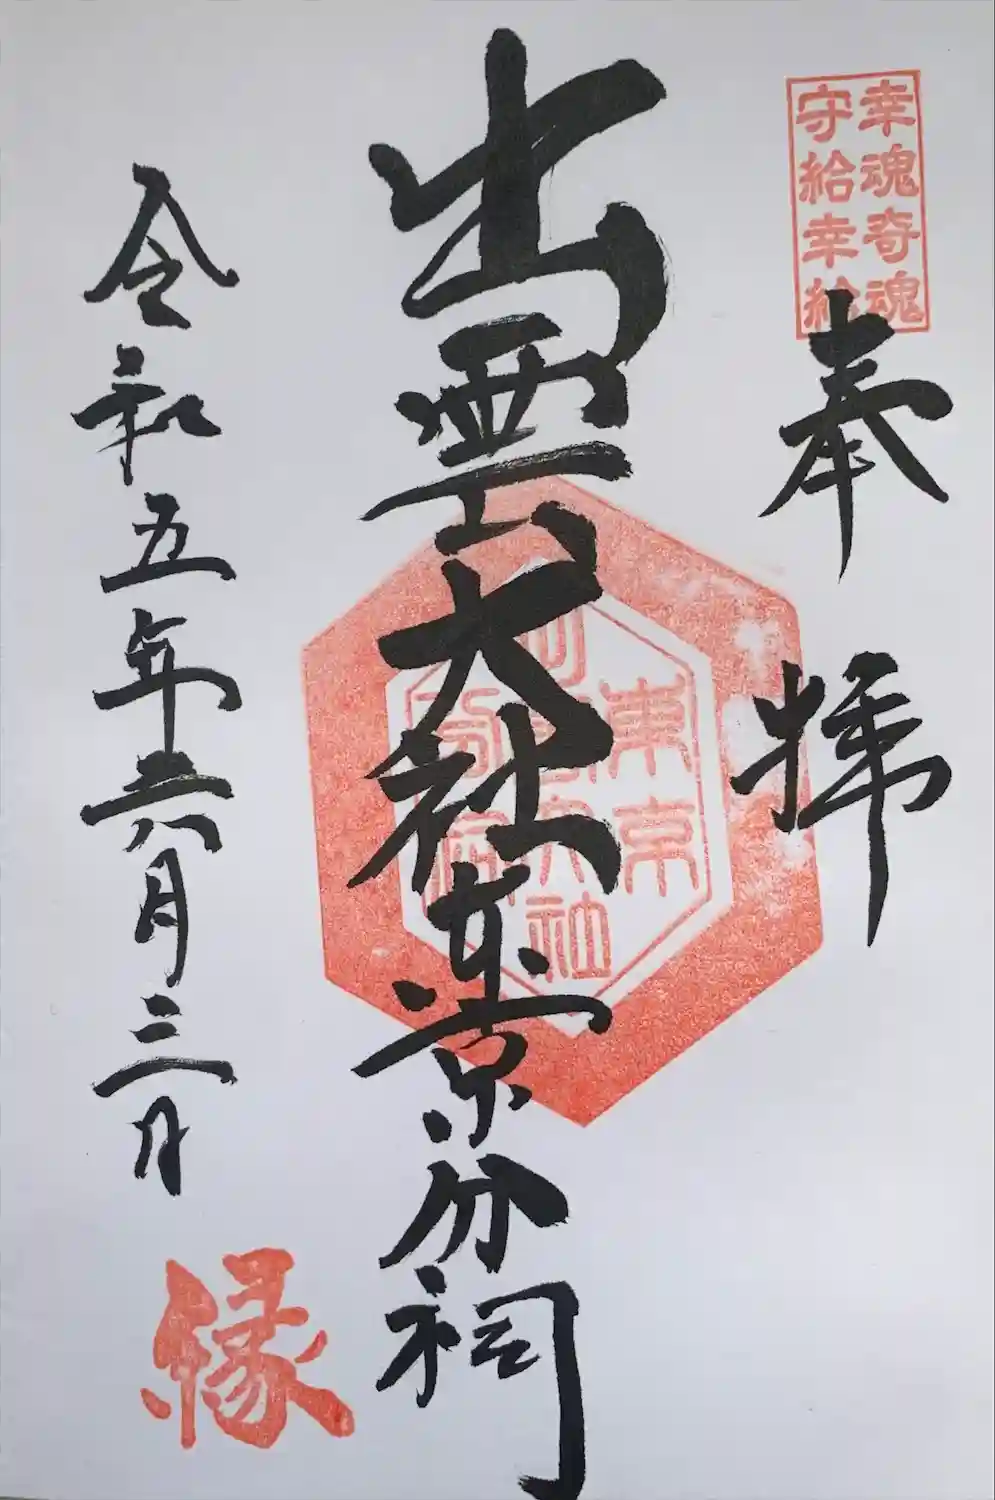 幸魂奇魂
守給幸給
奉拝
出雲大社東京分祠
東京
大社
令和五年六月三日
縁